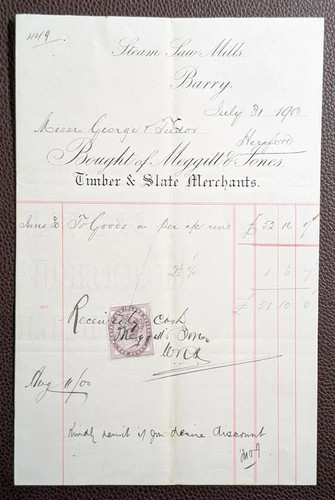 449
Steam Saw Mills,
Barry,
July 31 1900
Messrs George & Tudor
Hereford
Bought of Meggitt & Jones,
Timber & Slate Merchants.
June 30 To Goods as per a/c rend £ 52 16 7
2½ % 1 6 7
£ 51 10 0
Received Cash
Meggitt Jones
Aug 11/00
Kindly remit if you desire discount